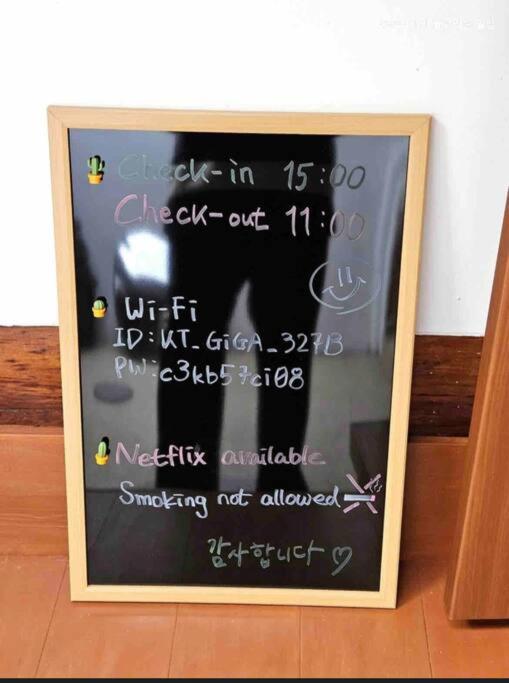 Check-in 15:00
Check-out 11:00
Wi-Fi
ID:KT_GiGA_327B
PW:c3kb57ci08
Netflix available
Smoking not allowed
감사합니다♡